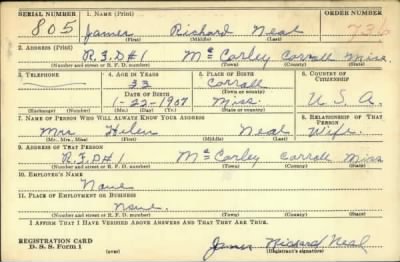 SERIAL NUMBER 1. NAME (Print) ORDER NUMBER
805 James Richard Neal 736
(First) (Middle) (Last)
2. ADDRESS (Print)
R.F.D#1 McCarley Carroll Miss.
(Number and street or R. F. D. number) (Town) (County) (State)
3. TELEPHONE 4. AGE IN YEARS 5. PLACE OF BIRTH 6. COUNTRY OF CITIZENSHIP
33 Carroll
DATE OF BIRTH (Town or county)
1-22-1907 Miss. U.S.A.
(Exchange) (Number) (Mo.) (Day) (Yr.) (State or country)
7. NAME OF PERSON WHO WILL ALWAYS KNOW YOUR ADDRESS 8. RELATIONSHIP OF THAT PERSON
Mrs Helen Neal Wife
(Mr., Mrs., Miss) (First) (Middle) (Last)
9. ADDRESS OF THAT PERSON
R.F.D#1 McCarley Carroll Miss
(Number and street or R. F. D. number) (Town) (County) (State)
10. EMPLOYER'S NAME
None
11. PLACE OF EMPLOYMENT OR BUSINESS
None
(Number and street or R. F. D. number) (Town) (County) (State)
I AFFIRM THAT I HAVE VERIFIED ABOVE ANSWERS AND THAT THEY ARE TRUE.
REGISTRATION CARD James Richard Neal
D. S. S. Form 1 (over) (Registrant's signature)